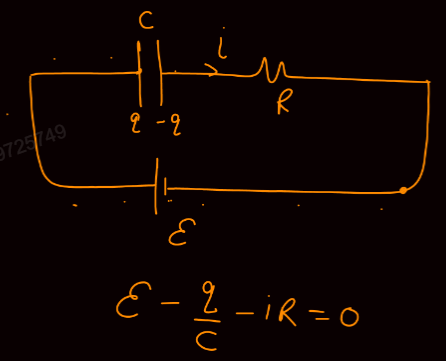 C
i
R
q -q
9725749
ℰ
ℰ - q/C - iR = 0